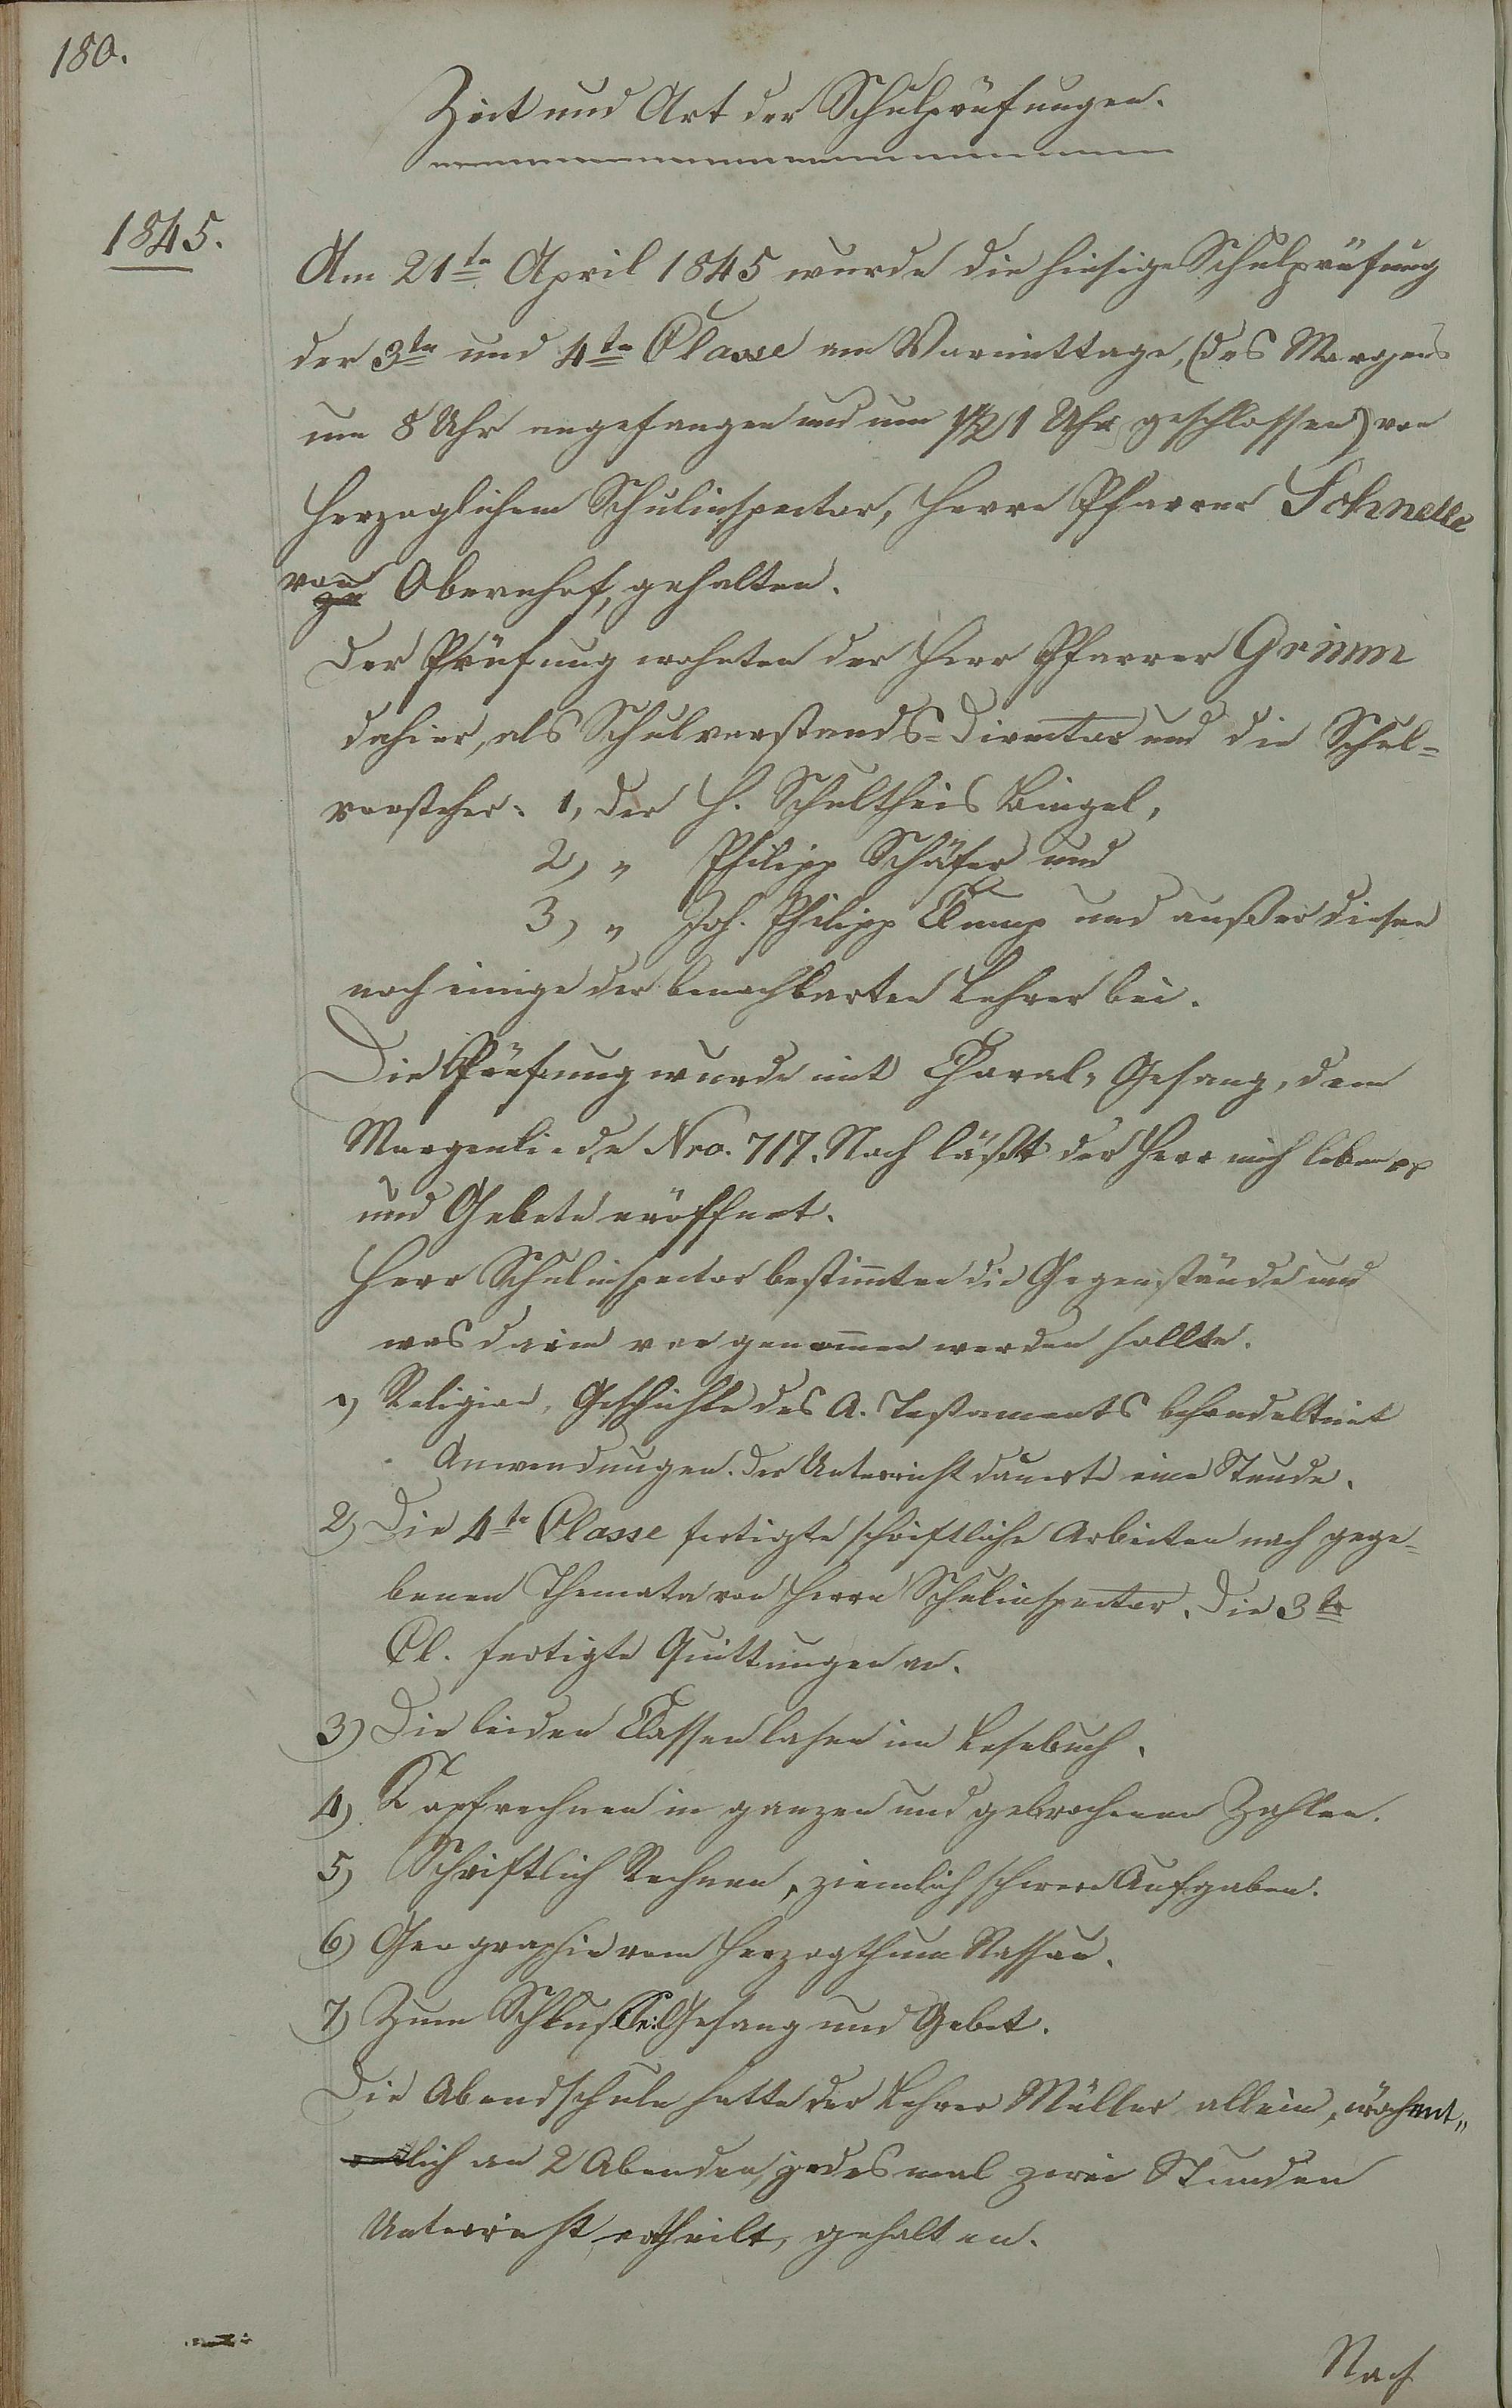 180.
Zeit und Art der Schulprüfungen.
1845.
Am 21ten April 1845 wurde die hiesige Schulprüfung
der 3ten und 4ten Classe am Vormittage, (des Morgens
um 8 Uhr angefangen und um 1/2 1 Uhr geschlossen) von
Herzoglichem Schulinspector, Herrn Pfarrer Schnelle
von Obernhof, gehalten.
Der Prüfung wohnten der Herr Pfarrer Grimm
dahier, als Schulvorstands-Director und die Schul-
vorsteher: 1, der H. Schultheis Bingel,
2, " Philipp Schäfer und
3, " Joh. Philipp Clump und außer diesen
noch einige der benachbarten Lehrer bei.
Die Prüfung wurde mit Choral-Gesang, dem
Morgenliede Nro. 717. Noch läßt der Herr mich leben pp
und Gebete eröffnet.
Herr Schulinspector bestimmten die Gegenstände und
was darin vorgenommen werden sollte.
1) Religion, Geschichte des A. Testaments behandelt mit
Anwendungen. Der Unterricht dauerte eine Stunde.
2) Die 4te Classe fertigte schriftliche Arbeiten nach gege-
benen Themata von Herrn Schulinspector. Die 3te
Cl. fertigte Quittungen an.
3) Die beiden Classen lasen im Lesebuch.
4) Kopfrechnen in ganzen und gebrochenen Zahlen.
5) Schriftlich Rechnen, ziemlich schwere Aufgaben.
6) Geographie vom Herzogthum Nassau.
7) Zum Schlusse: Gesang und Gebet.
Die Abendschule hatte der Lehrer Müller allein, wöchent-
lich an 2 Abenden, jedesmal zwei Stunden
Unterricht ertheilt, gehalten.
Nach